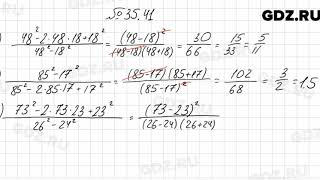 GDZ.RU
№ 35.41
) (48² - 2·48·18 + 18²)/(48² - 18²) = (48-18)²/((48-18)(48+18)) = 30/66 = 15/33 = 5/11
) (85² - 17²)/(85² - 2·85·17 + 17²) = ((85-17)(85+17))/(85-17)² = 102/68 = 3/2 = 1.5
) (73² - 2·73·23 + 23²)/(26² - 24²) = (73-23)²/((26-24)(26+24))
GDZ.RU